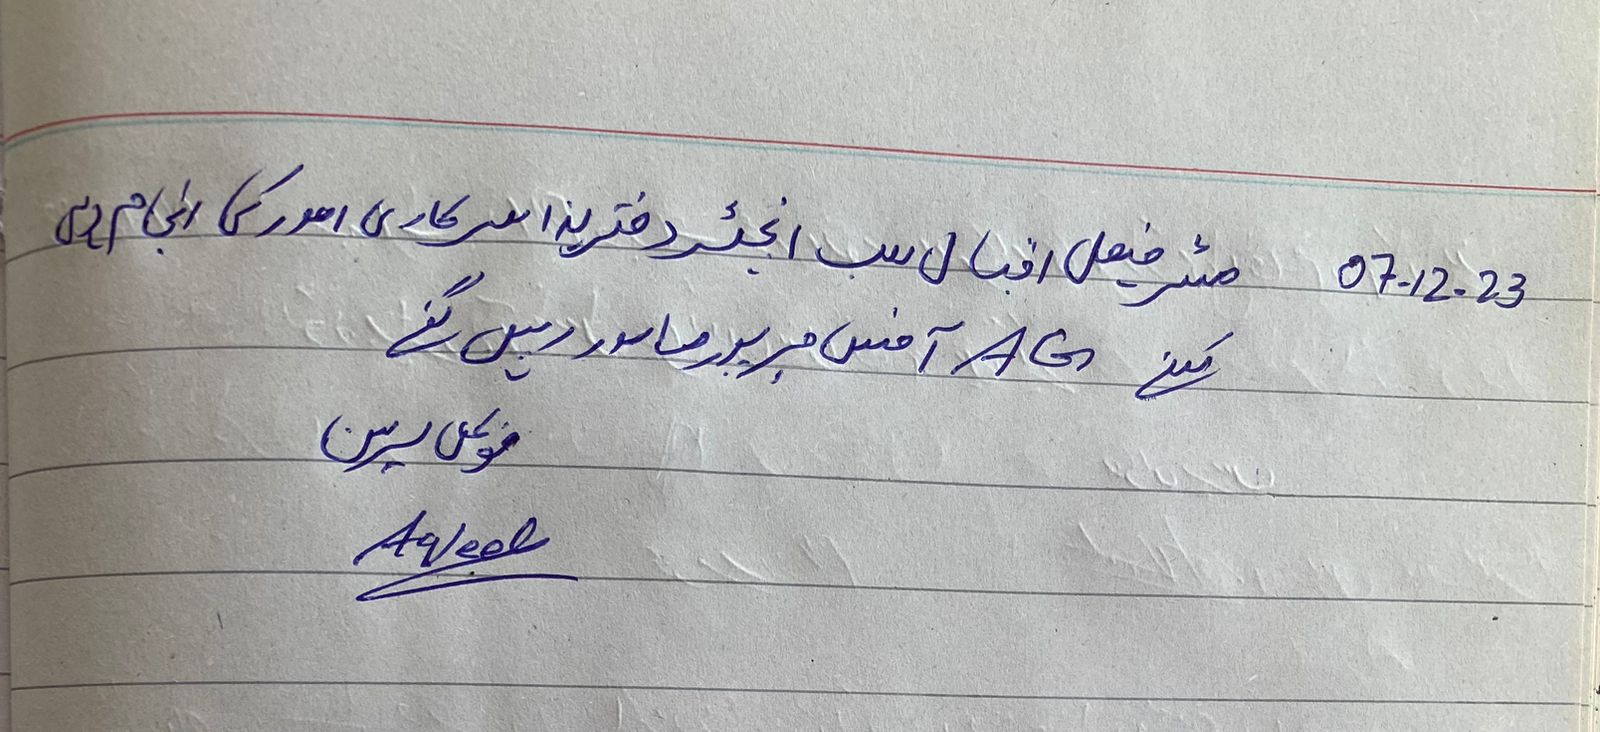 07-12-23 مسٹر فیصل اقبال سب انجینئر دفتر ہذا سرکاری امور کی انجام دہی
کیلئے AG آفس میرپور مامور رہیں گے
فوکل پرسن
Aqeel